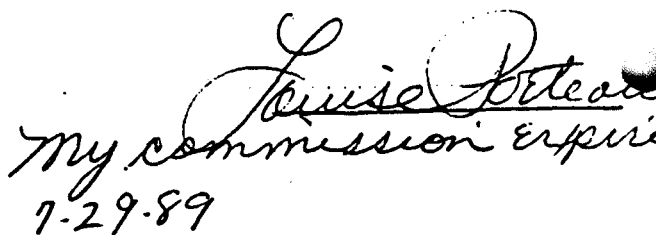 Louise Porteau
My commission expire
7-29-89